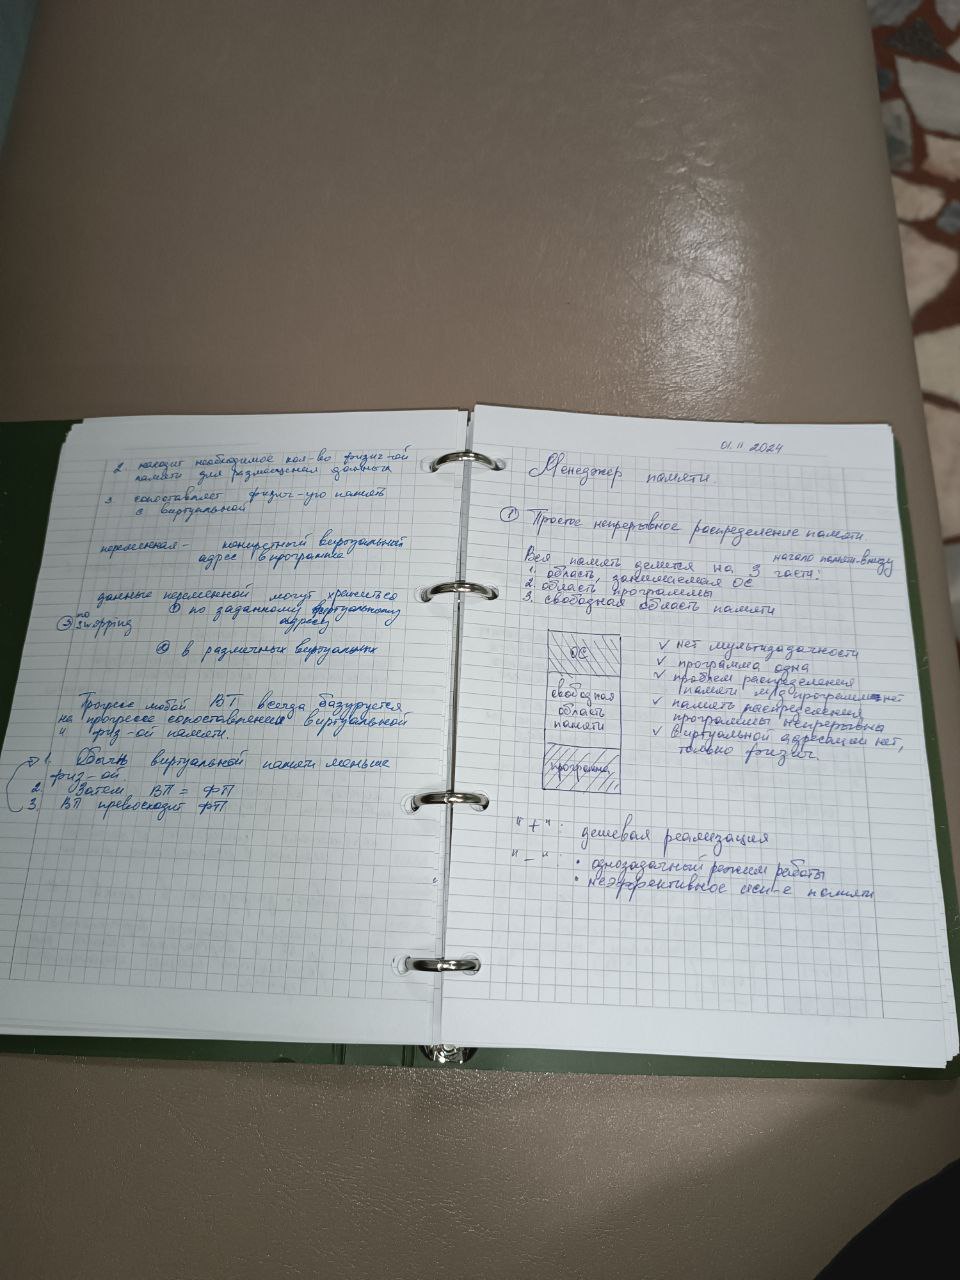 2. находит необходимое кол-во физич-ой
памяти для размещения данных
3. сопоставляет физич-ую память
с виртуальной
переменная - конкретный виртуальный
адрес в программе
данные переменной могут храниться
① по заданному виртуальному
адресу
③ по
swopping
② в различных виртуальных
Прогресс любой ВТ всегда базируется
на прогрессе сопоставления виртуальной
и физ-ой памяти.
1. виртуальной памяти меньше
физ-ой
2. Затем ВП = ФП
3. ВП превосходит ФП
01.11.2024
Менеджер памяти.
① Простое непрерывное распределение памяти
Вся память делится на 3 части:
начало памяти-внизу
1. область, занимаемая ОС
2. область программы
3. свободная область памяти
ОС
свободная
область
памяти
программа
✓ нет мультизадачности
✓ программа одна
✓ проблем распределения
памяти м/д программ нет
✓ память распределения
программы непрерывна
✓ виртуальной адресации нет,
только физич.
"+" : дешевая реализация
"–" : • однозадачный режим работы
• неэффективное исп-е памяти